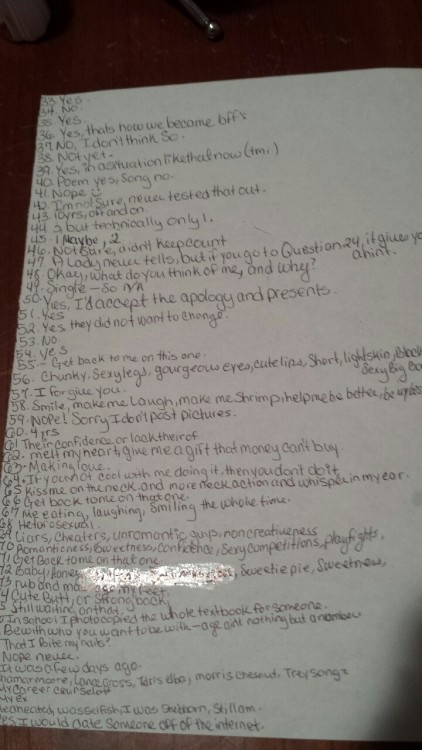 33. Yes.
34. No.
35. Yes.
36. Yes, thats how we became bffs
37. NO, I don't think so.
38. Not yet.
39. Yes, in a situation like that now (tmi)
40. Poem yes, Song no.
41. Nope
42. I'm not sure, never tested that out.
43. 10yrs, off and on.
44. 3 but technically only 1.
45. 1 Maybe, 2
46. Not sure, didn't keep count
47. A Lady never tells, but if you go to Question 24, it give yo
a hint.
48. Okay, what do you think of me, and why?
49. Single - So N/A
50. Yes, I'd accept the apology and presents.
51. Yes
52. Yes they did not want to change.
53. No.
54. Yes
55. - Get back to me on this one.
56. Chunky, Sexy legs, gourgeous eyes, cute lips, Short, lightskin, Black
Sexy Big Bo
57. I forgive you.
58. Smile, make me Laugh, make me Shrimp, help me be better, be
59. NOPE! Sorry I don't post pictures.
60. 4 yrs
61. Their confidence or lack their of
62. melt my heart, give me a gift that money can't buy
63. Making love.
64. If your not cool with me doing it, then you don't do it
65. Kiss me on the neck and more neck action and whisper in my ear.
66 Get back to me on that one.
67 Me eating, laughing, smiling the whole time.
68 Heterosexual.
69 Liars, Cheaters, unromantic guys, noncreativeness
70 Romanticness, Sweetness, Confidence, Sexy competitions, playfights,
71 Get Back to me on that one
72 Baby, Honey, Sweetie pie, Sweetness,
73 rub and my feet,
4 Cute Butt, or Strong back,
5 Still waiting on that.
In school I photocopied the whole textbook for someone.
Be with who you want to be with - age aint nothing but a number
That I Bite my nails?
Nope never.
It was a few days ago.
Shamar moore, Lance Gross, Idris elba, morris chesnut, Trey Songz
My Career Counselor
My ex
He cheated, was selfish, I was Stubborn, Still am.
Yes I would date someone off of the internet.